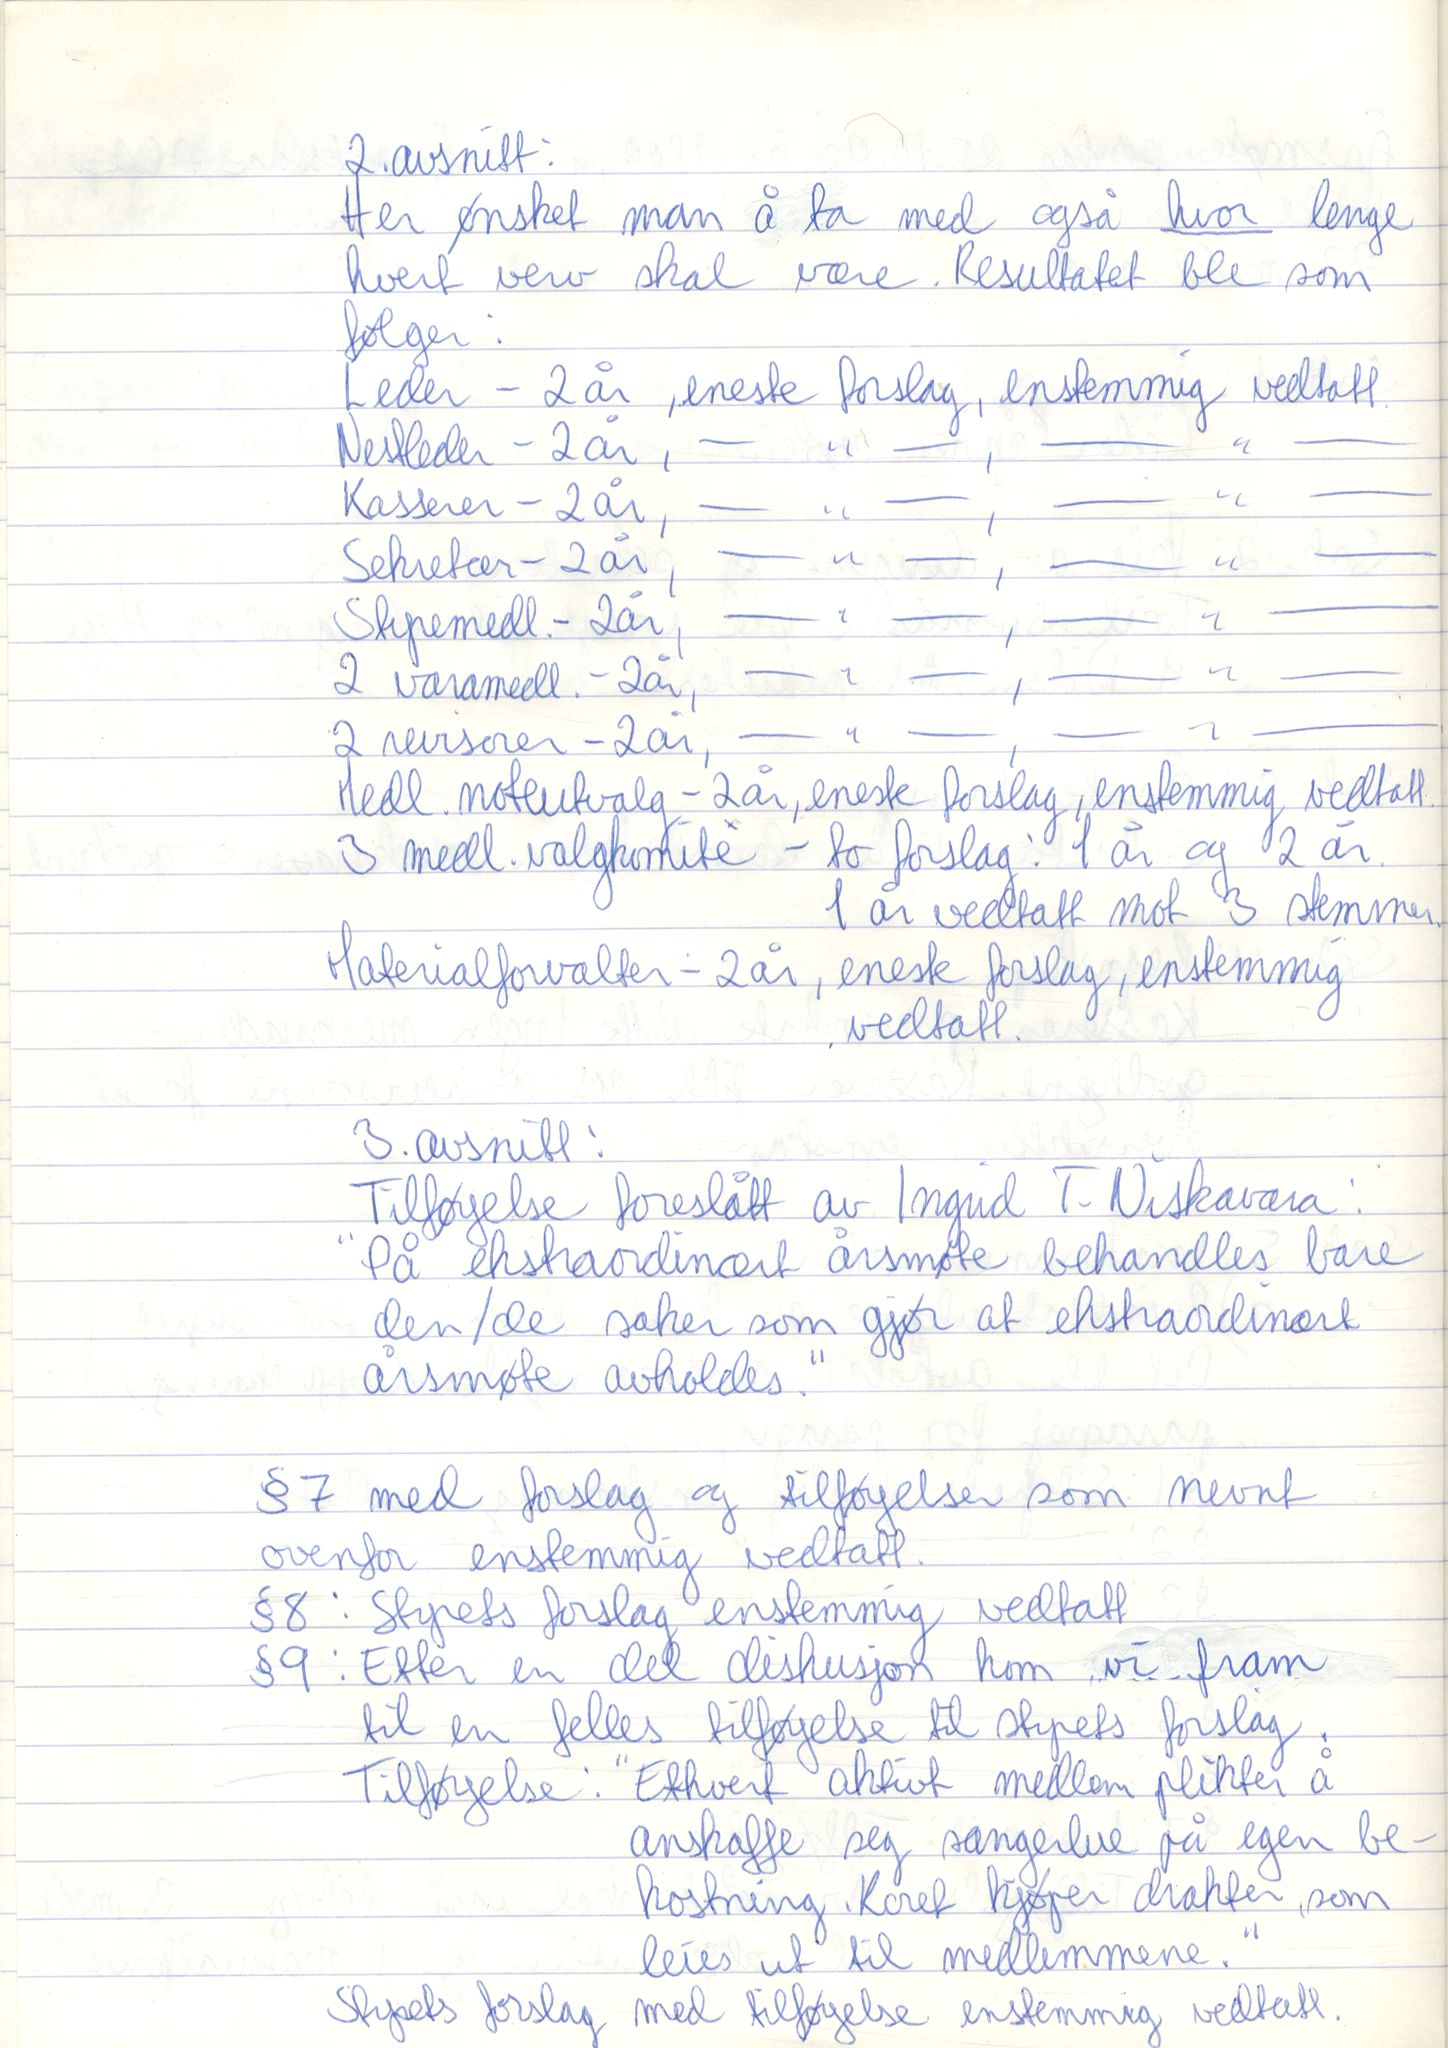 2. avsnitt:
Her ønsket man å ta med også hvor lenge
hvert verv skal være. Resultatet ble som
følger:
Leder - 2 år, eneste forslag, enstemmig vedtatt.
Nestleder - 2 år, — " —, — " —
Kasserer - 2 år, — " —, — " —
Sekretær - 2 år, — " —, — " —
Styremedl. - 2 år, — " —, — " —
2 varamedl. - 2 år, — " —, — " —
2 revisorer - 2 år, — " —, — " —
Medl. noteutvalg - 2 år, eneste forslag, enstemmig vedtatt.
3 medl. valgkomitè - to forslag: 1 år og 2 år.
1 år vedtatt mot 3 stemmer.
Materialforvalter - 2 år, eneste forslag, enstemmig
vedtatt.
3. avsnitt:
Tilføyelse foreslått av Ingrid T. Niskavara:
"På ekstraordinært årsmøte behandles bare
den/de saker som gjør at ekstraordinært
årsmøte avholdes."
§7 med forslag og tilføyelser som nevnt
ovenfor enstemmig vedtatt.
§8: Styrets forslag enstemmig vedtatt
§9: Etter en del diskusjon kom vi fram
til en felles tilføyelse til styrets forslag.
Tilføyelse: "Ethvert aktivt medlem plikter å
anskaffe seg sangerlue på egen be-
kostning. Koret kjøper drakter, som
leies ut til medlemmene."
Styrets forslag med tilføyelse enstemmig vedtatt.